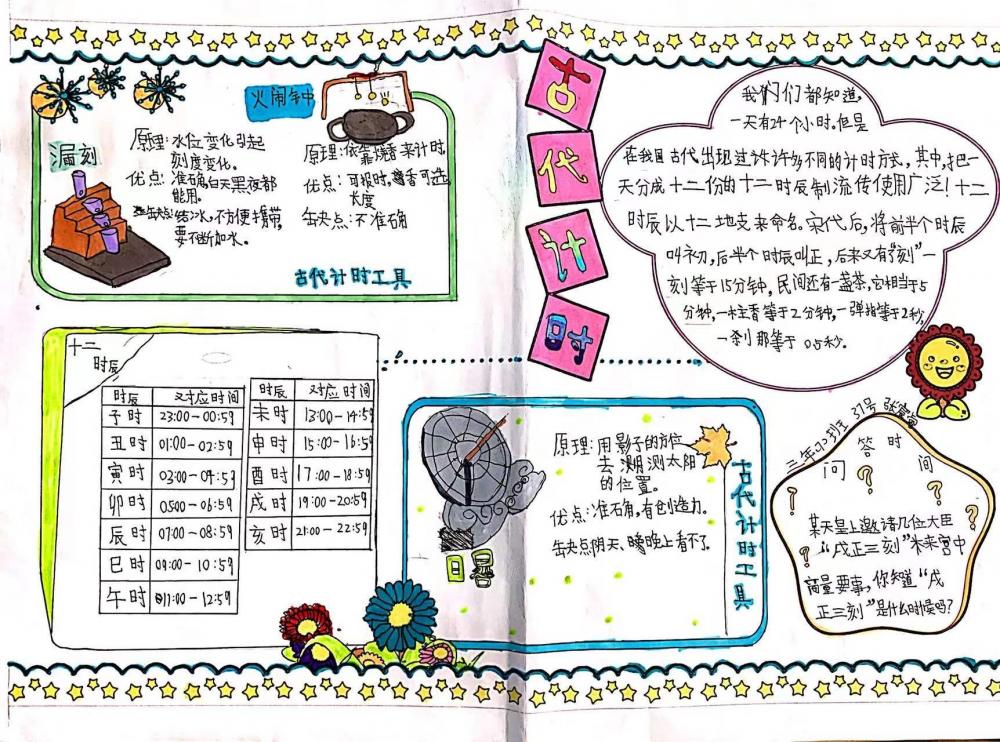 古代计时
漏刻
原理:水位变化引起
刻度变化。
优点:准确,白天黑夜都
能用。
缺点:结冰,不方便携带,
要不断加水。
火闹钟
原理:依靠烧香来计时,
优点:可报时,香可选
长度
缺点:不准确
古代计时工具
我们们都知道,
一天有24个小时。但是
在我国古代出现过许许多不同的计时方式,其中,把一
天分成十二份的十二时辰制流传使用广泛!十二
时辰以十二地支来命名。宋代后,将前半个时辰
叫初,后半个时辰叫正,后来又有了"刻"一
刻等于15分钟,民间还有一盏茶,它相当于5
分钟,一柱香等于2分钟,一弹指等于2秒,
一刹那等于05秒。
十二
时辰
时辰 对应时间
子时 23:00-00:59
丑时 01:00-02:59
寅时 03:00-04:53
卯时 0500-06:59
辰时 07:00-08:59
巳时 09:00-10:59
午时 11:00-12:59
时辰 对应时间
未时 13:00-14:59
申时 15:00-16:59
酉时 17:00-18:59
戌时 19:00-20:59
亥时 21:00-22:59
日晷
原理:用影子的方位
去测太阳
的位置。
优点:准确,有创造力。
缺点阴天、晚上看不了。
古代计时工具
三年 班 37号 张
问答时间
某天皇上邀请几位大臣
"戌正三刻"来宫中
商量要事,你知道"戌
正三刻"是什么时候吗?